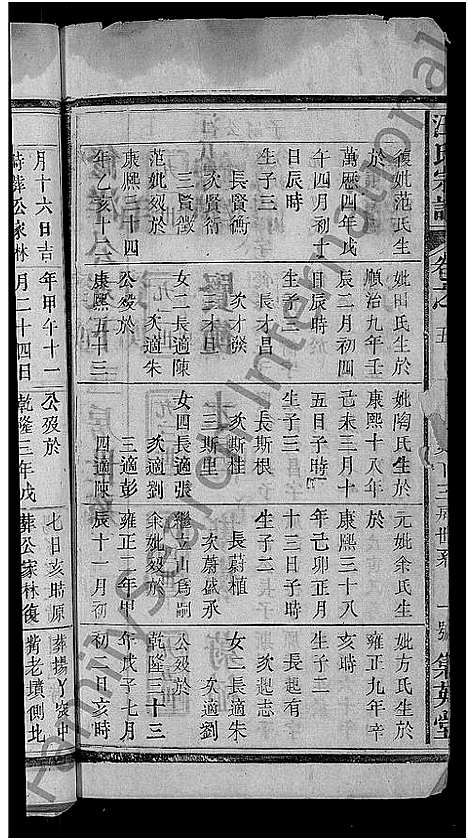 汪氏宗譜
卷之
五
集英堂
復妣范氏生
於
萬歷四年戊
午四月初十
日辰時
生子三
長賢衡
次賢術
三賢徵
范妣歿於
康熙二十四
年乙亥十二
月十六日吉
時葬公家林
妣田氏生於
順治九年壬
辰二月初四
日辰時
生子三
長才昌
次才發
三才日
女二長適陳
次適朱
公歿於
康熙五十三
年甲午十一
月二十四日
妣陶氏生於
康熙十八年
己未三月十
五日子時
生子三
長斯根
次斯桂
三斯里
女四長適張
次適劉
三適彭
四適陳
公歿於
乾隆三年戊
元妣余氏生
於
康熙三十八
年己卯正月
十三日子時
生子二
長蔚植
次蔚盛承
繼立山為嗣
余妣歿於
雍正二年甲
辰十一月初
七日亥時原
葬公家林復
妣方氏生於
雍正九年辛
亥時
生子二
長起有
次起志
女二長適朱
次適劉
公歿於
乾隆三十三
年戊子七月
初二日亥時
葬楊丫沖
嘴老墳側地
Family Search International